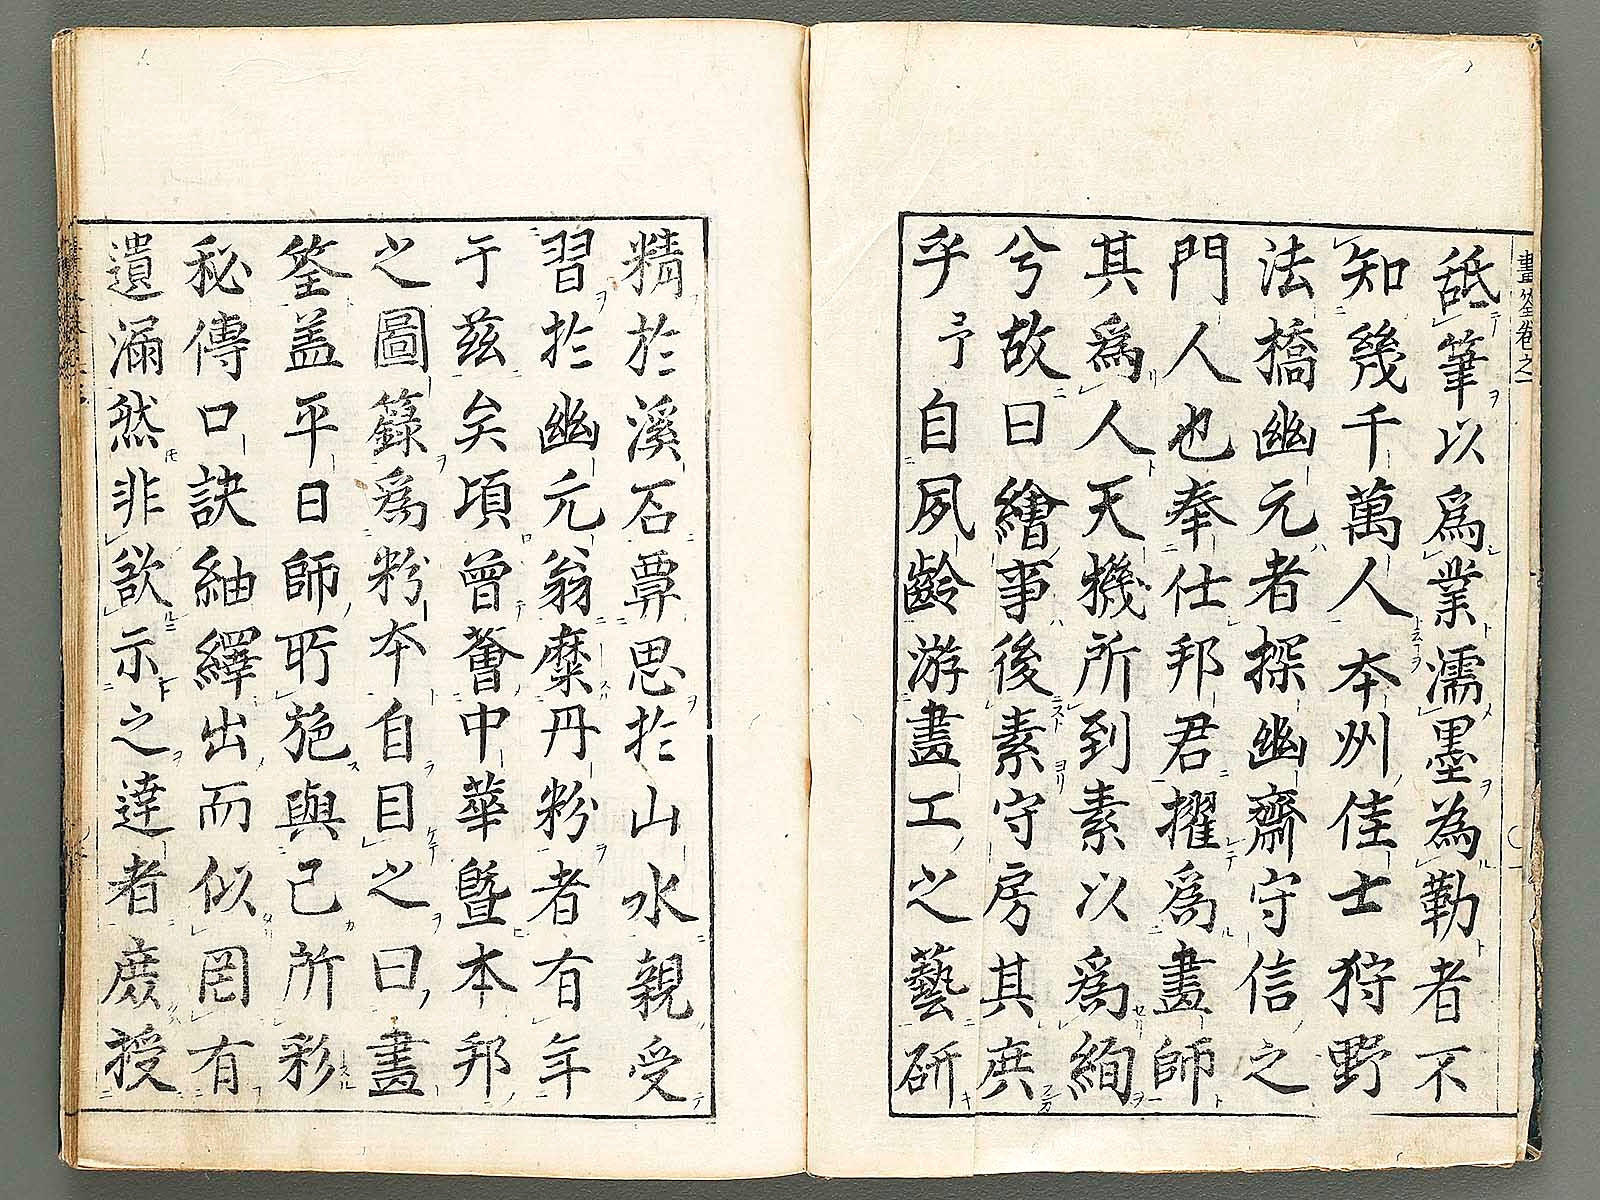 畫筌卷之一
舐筆以爲業濡墨為勒者不
知幾千萬人本州佳士狩野
法橋幽元者探幽齋守信之
門人也奉仕邦君擢爲畫師
其爲人天機所到素以爲絢
兮故曰繪事後素守房其庶
乎予自夙齡游畫工之藝研
精於溪石覃思於山水親受
習於幽元翁糜丹粉者有年
于茲矣頃曾薈中華曁本邦
之圖籙爲粉本自目之曰畫
筌盖平日師所施與己所彩
秘傳口訣紬繹出而似罔有
遺漏然非欲示之達者庶授